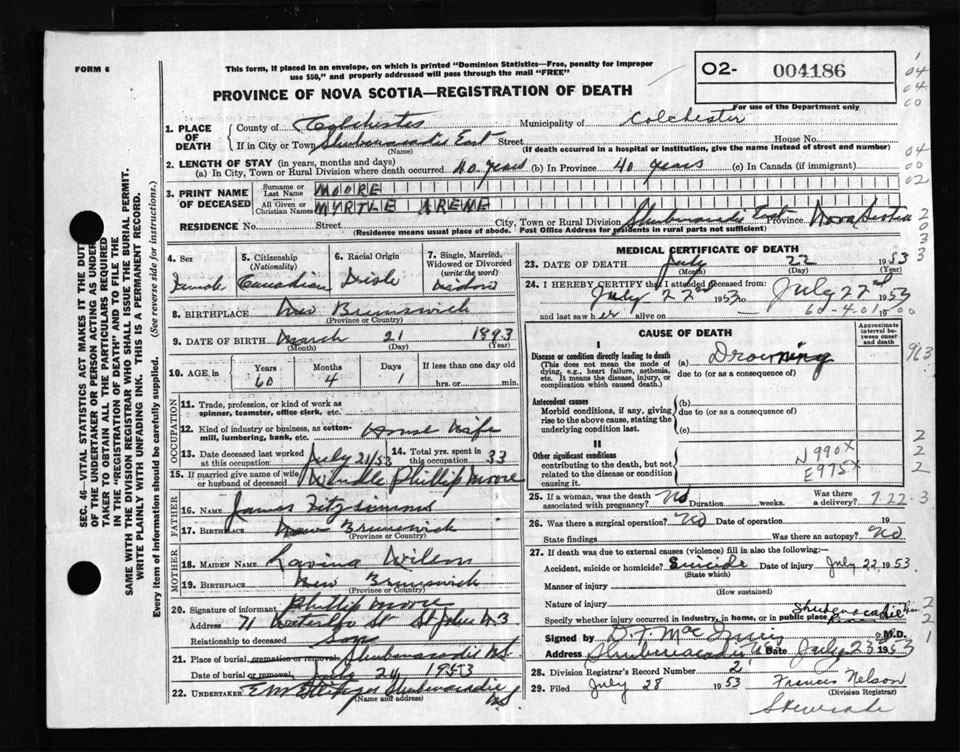 FORM 6
This form, if placed in an envelope, on which is printed "Dominion Statistics—Free, penalty for improper
use $50," and properly addressed will pass through the mail "FREE"
02- 004186
For use of the Department only
PROVINCE OF NOVA SCOTIA—REGISTRATION OF DEATH
1. PLACE OF DEATH County of Colchester Municipality of Colchester
If in City or Town Shubenacadie East Street House No.
(Name) (If death occurred in a hospital or institution, give the name instead of street and number)
2. LENGTH OF STAY (in years, months and days)
(a) In City, Town or Rural Division where death occurred 40 years (b) In Province 40 years (c) In Canada (if immigrant)
3. PRINT NAME OF DECEASED Surname or Last Name MOORE
All Given or Christian Names MYRTLE ARENE
RESIDENCE No. Street City, Town or Rural Division Shubenacadie East Province Nova Scotia
(Residence means usual place of abode. Post Office Address for residents in rural parts not sufficient)
4. Sex 5. Citizenship (Nationality) 6. Racial Origin 7. Single, Married, Widowed or Divorced (write the word)
Female Canadian Irish Widow
8. BIRTHPLACE New Brunswick
(Province or Country)
9. DATE OF BIRTH March 21 1893
(Month) (Day) (Year)
10. AGE in Years Months Days If less than one day old
60 4 1 hrs. or min.
OCCUPATION
11. Trade, profession, or kind of work as
spinner, teamster, office clerk, etc.
12. Kind of industry or business, as cotton-
mill, lumbering, bank, etc. House Wife
13. Date deceased last worked at this occupation July 21/53 14. Total yrs. spent in this occupation 33
15. If married give name of wife or husband of deceased Phillip Moore
FATHER
16. NAME James Fitzsimmons
17. BIRTHPLACE New Brunswick
(Province or Country)
MOTHER
18. MAIDEN NAME Lavina Wilson
19. BIRTHPLACE New Brunswick
(Province or Country)
20. Signature of informant Phillip Moore
Address 71 Waterloo St St John N.B
Relationship to deceased Son
21. Place of burial, cremation or removal Shubenacadie N.S.
Date of burial or removal July 24 1953
22. UNDERTAKER Shubenacadie N.S
(Name and address)
MEDICAL CERTIFICATE OF DEATH
23. DATE OF DEATH July 22 1953
(Month) (Day) (Year)
24. I HEREBY CERTIFY that I attended deceased from:
July 22nd 1953 to July 22nd 1953
and last saw her alive on 19
60-4-01
CAUSE OF DEATH
Approximate interval between onset and death
I
Disease or condition directly leading to death (a) Drowning
(This does not mean the mode of dying, e.g., heart failure, asthenia, etc. It means the disease, injury, or complication which caused death.)
due to (or as a consequence of)
Antecedent causes
Morbid conditions, if any, giving rise to the above cause, stating the underlying condition last.
(b)
due to (or as a consequence of)
(c)
II
Other significant conditions
contributing to the death, but not related to the disease or condition causing it.
N990X
E975X
25. If a woman, was the death associated with pregnancy? No Duration weeks. Was there a delivery?
7-22-3
26. Was there a surgical operation? No Date of operation 19
State findings Was there an autopsy? No
27. If death was due to external causes (violence) fill in also the following:—
Accident, suicide or homicide? Suicide Date of injury July 22 1953
(State which)
Manner of injury
(How sustained)
Nature of injury
Specify whether injury occurred in industry, in home, or in public place Shubenacadie River
Signed by M.D.
Address Shubenacadie Date July 23 1953
28. Division Registrar's Record Number 2
29. Filed July 28 1953 Francis Nelson
(Division Registrar)
963
SEC. 46—VITAL STATISTICS ACT MAKES IT THE DUTY
OF THE UNDERTAKER OR PERSON ACTING AS UNDER-
TAKER TO OBTAIN ALL THE PARTICULARS REQUIRED
IN THE "REGISTRATION OF DEATH" AND TO FILE THE
SAME WITH THE DIVISION REGISTRAR WHO SHALL ISSUE THE BURIAL PERMIT.
WRITE PLAINLY WITH UNFADING INK. THIS IS A PERMANENT RECORD.
Every item of information should be carefully supplied. (See reverse side for instructions.)